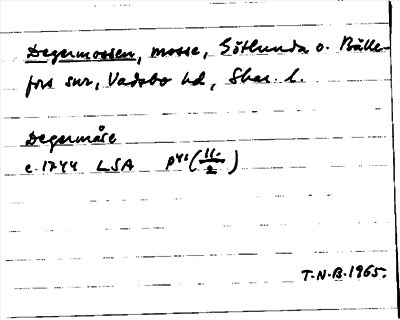 Degermossen, mosse, Götlunda o. Bälle-
fors snr, Vadsbo hd, Skar. l.
Degermåse
c. 1744 LSA P41 (11/2)
T.N.B. 1965.